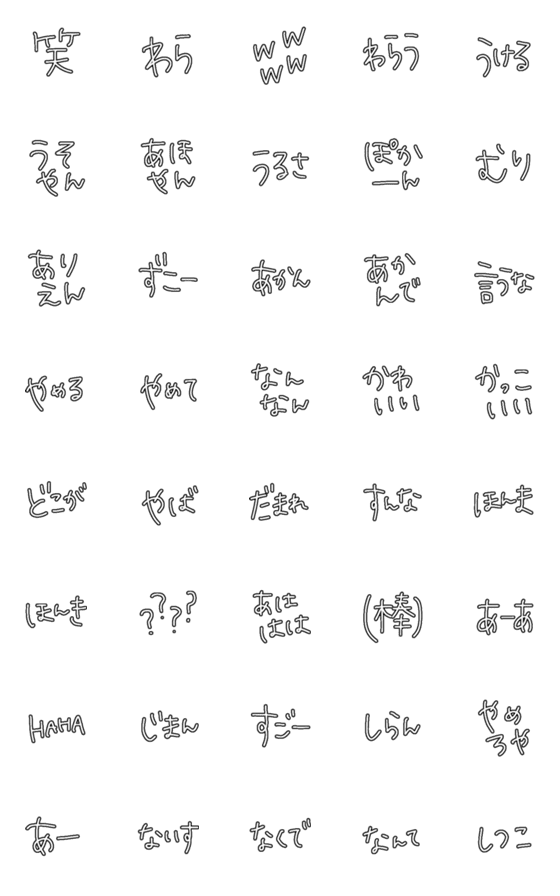 笑
わら
w w
w w
わらう
うける
うそ
やん
あほ
やん
うるさ
ぽか
ーん
むり
あり
えん
ずこー
あかん
あか
んで
言うな
やめる
やめて
なん
なん
かわ
いい
かっこ
いい
どこが
やば
だまれ
すんな
ほんま
ほんき
????
あは
はは
(棒)
あーあ
HAHA
じまん
すごー
しらん
やめ
ろや
あー
ないす
なくで
なんて
しつこ